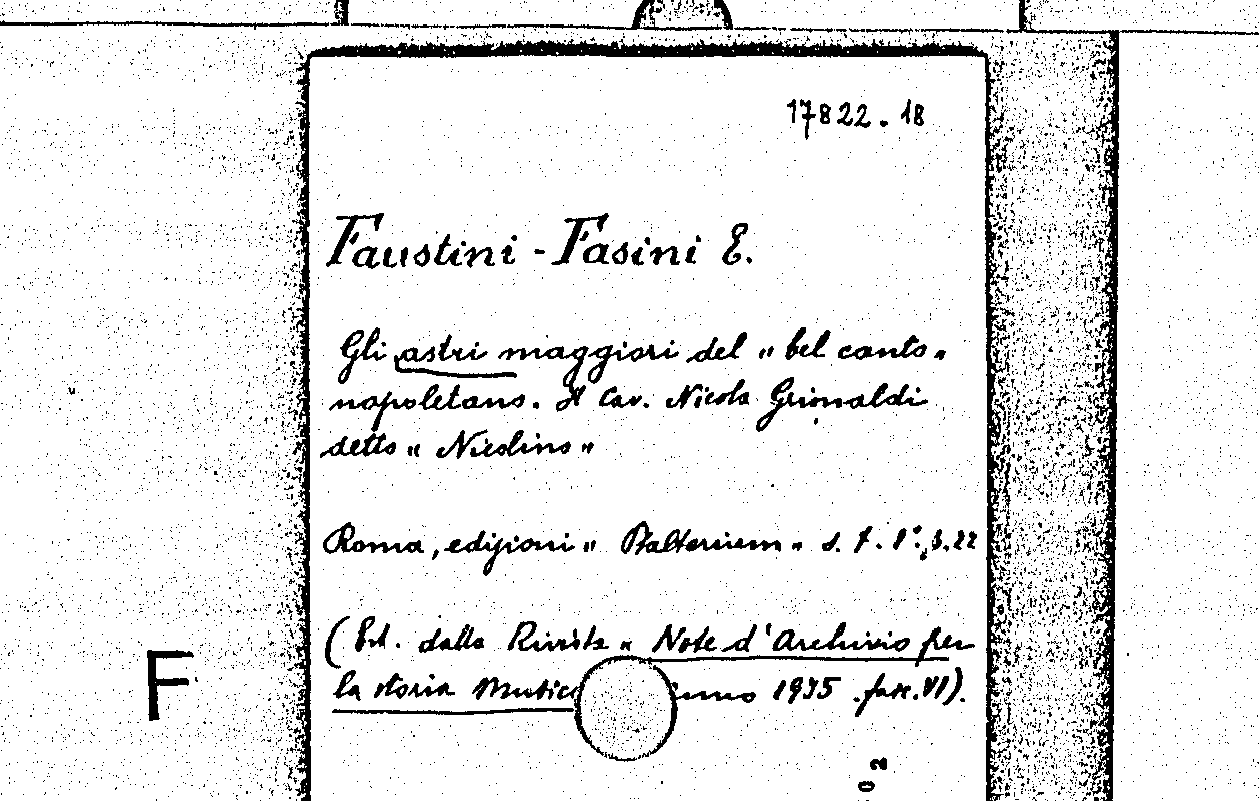 17822.18
Faustini - Fasini E.
Gli astri maggiori del " bel canto "
napoletano. Il Cav. Nicola Grimaldi
detto " Nicolino "
Roma, edizioni " Psalterium " s. t. 8°, p. 22
( Est. dalla Rivista " Note d'Archivio per
la storia Music anno 1935 fasc. VI).
F
0 2